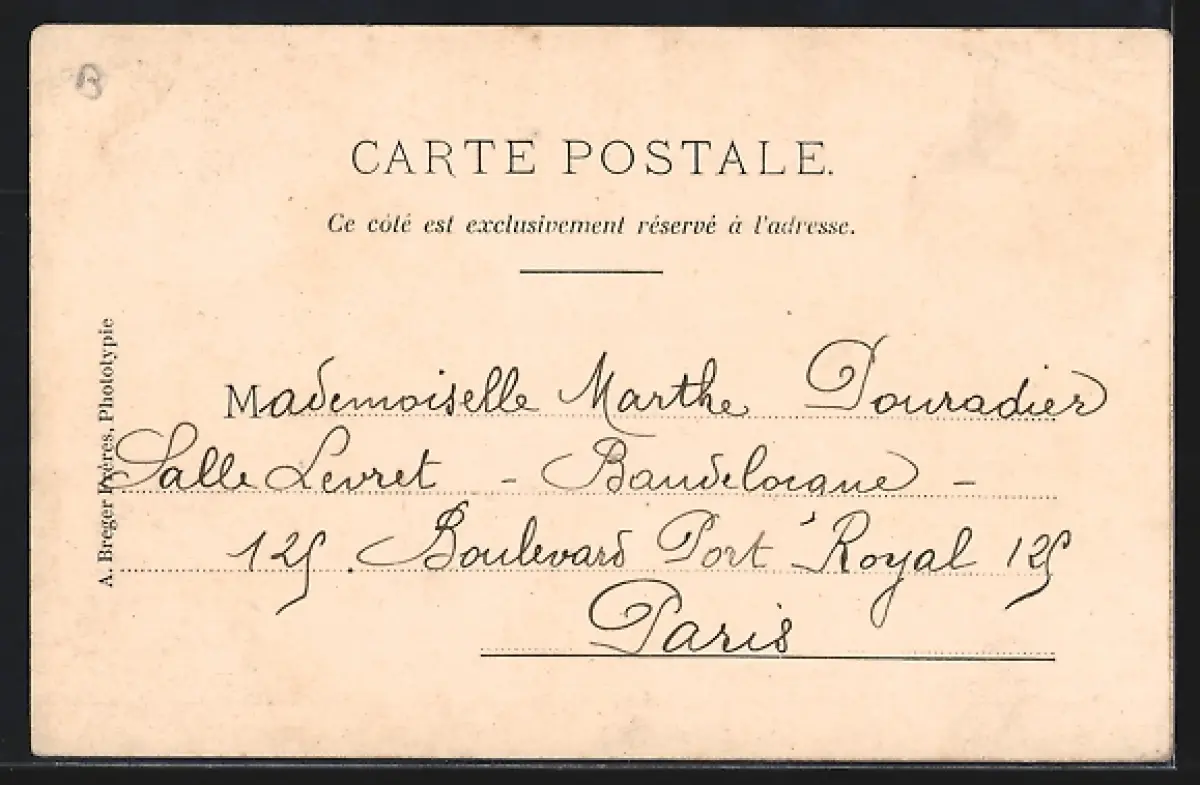 B
CARTE POSTALE.
Ce côté est exclusivement réservé à l'adresse.
A. Breger Frères, Phototypie
Mademoiselle Marthe Douradier
Salle Levret - Baudelocque -
125. Boulevard Port Royal 125
Paris